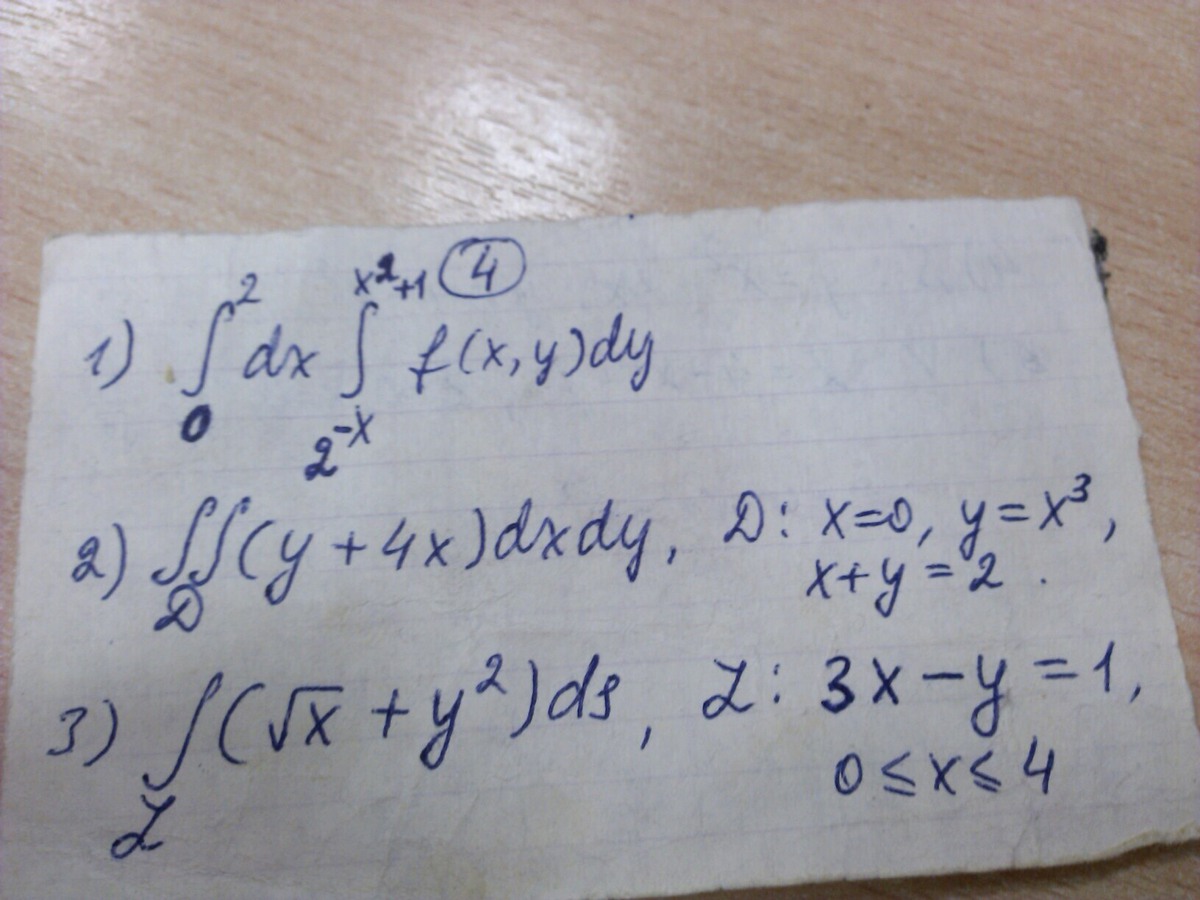 4
1) ∫₀² dx ∫_{2^{-x}}^{x²+1} f(x, y)dy
2) ∬_D (y + 4x)dxdy, D: x=0, y=x³,
x+y=2.
3) ∫_L (√x + y²)ds, L: 3x-y=1,
0≤x≤4